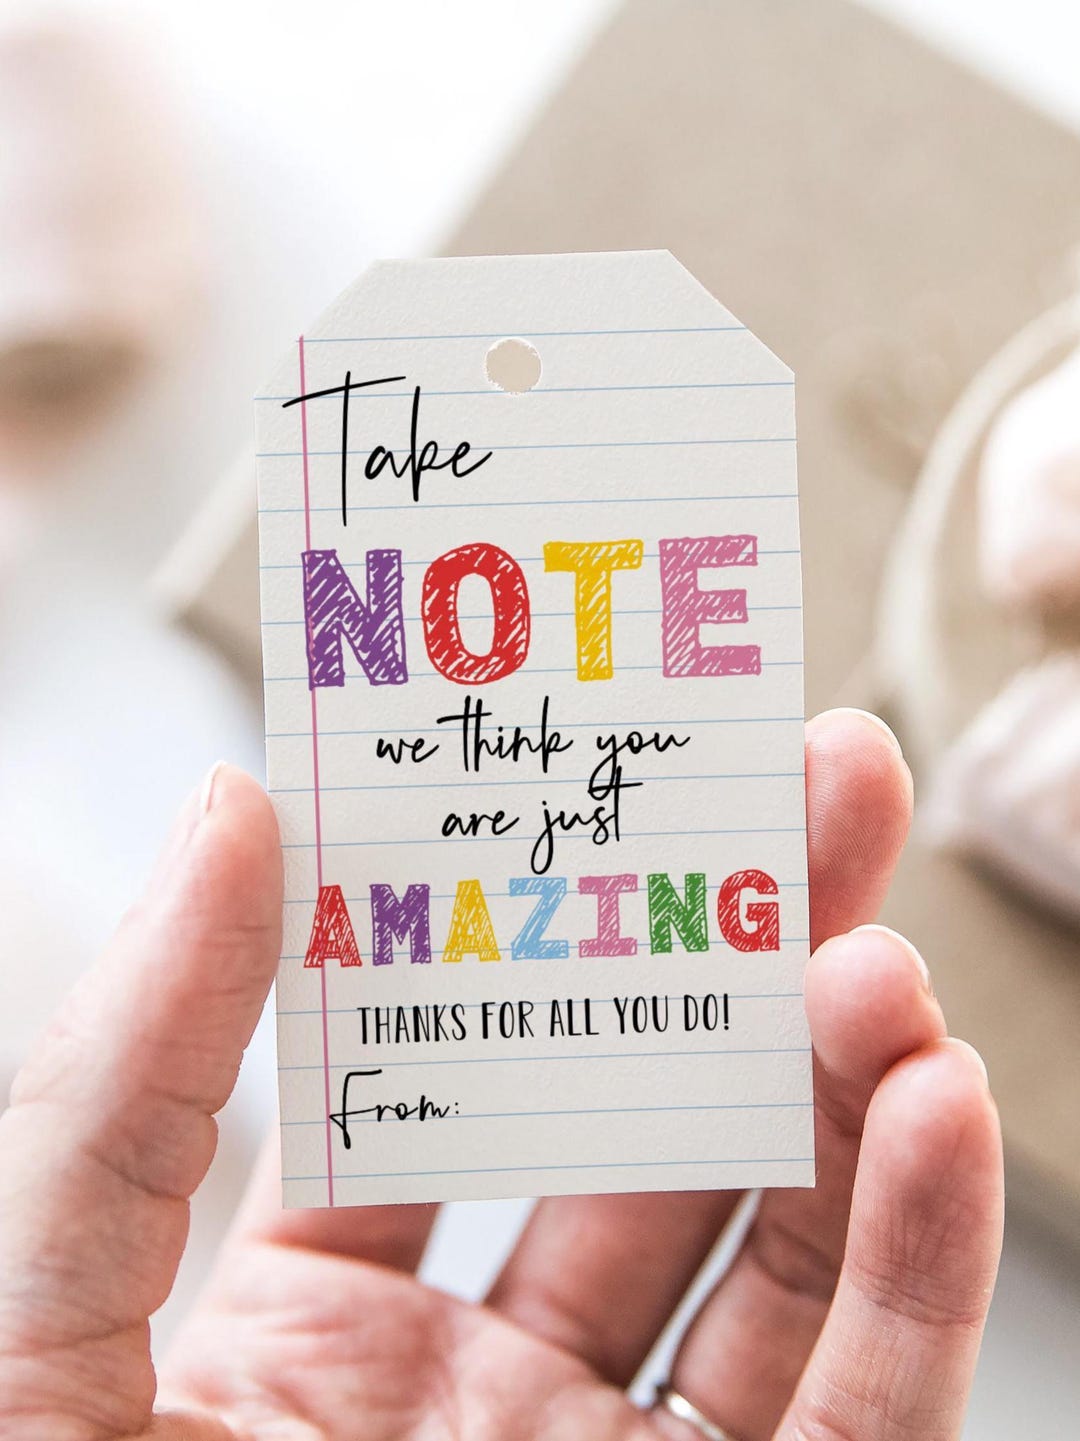 Take
NOTE
we think you
are just
AMAZING
THANKS FOR ALL YOU DO!
From: